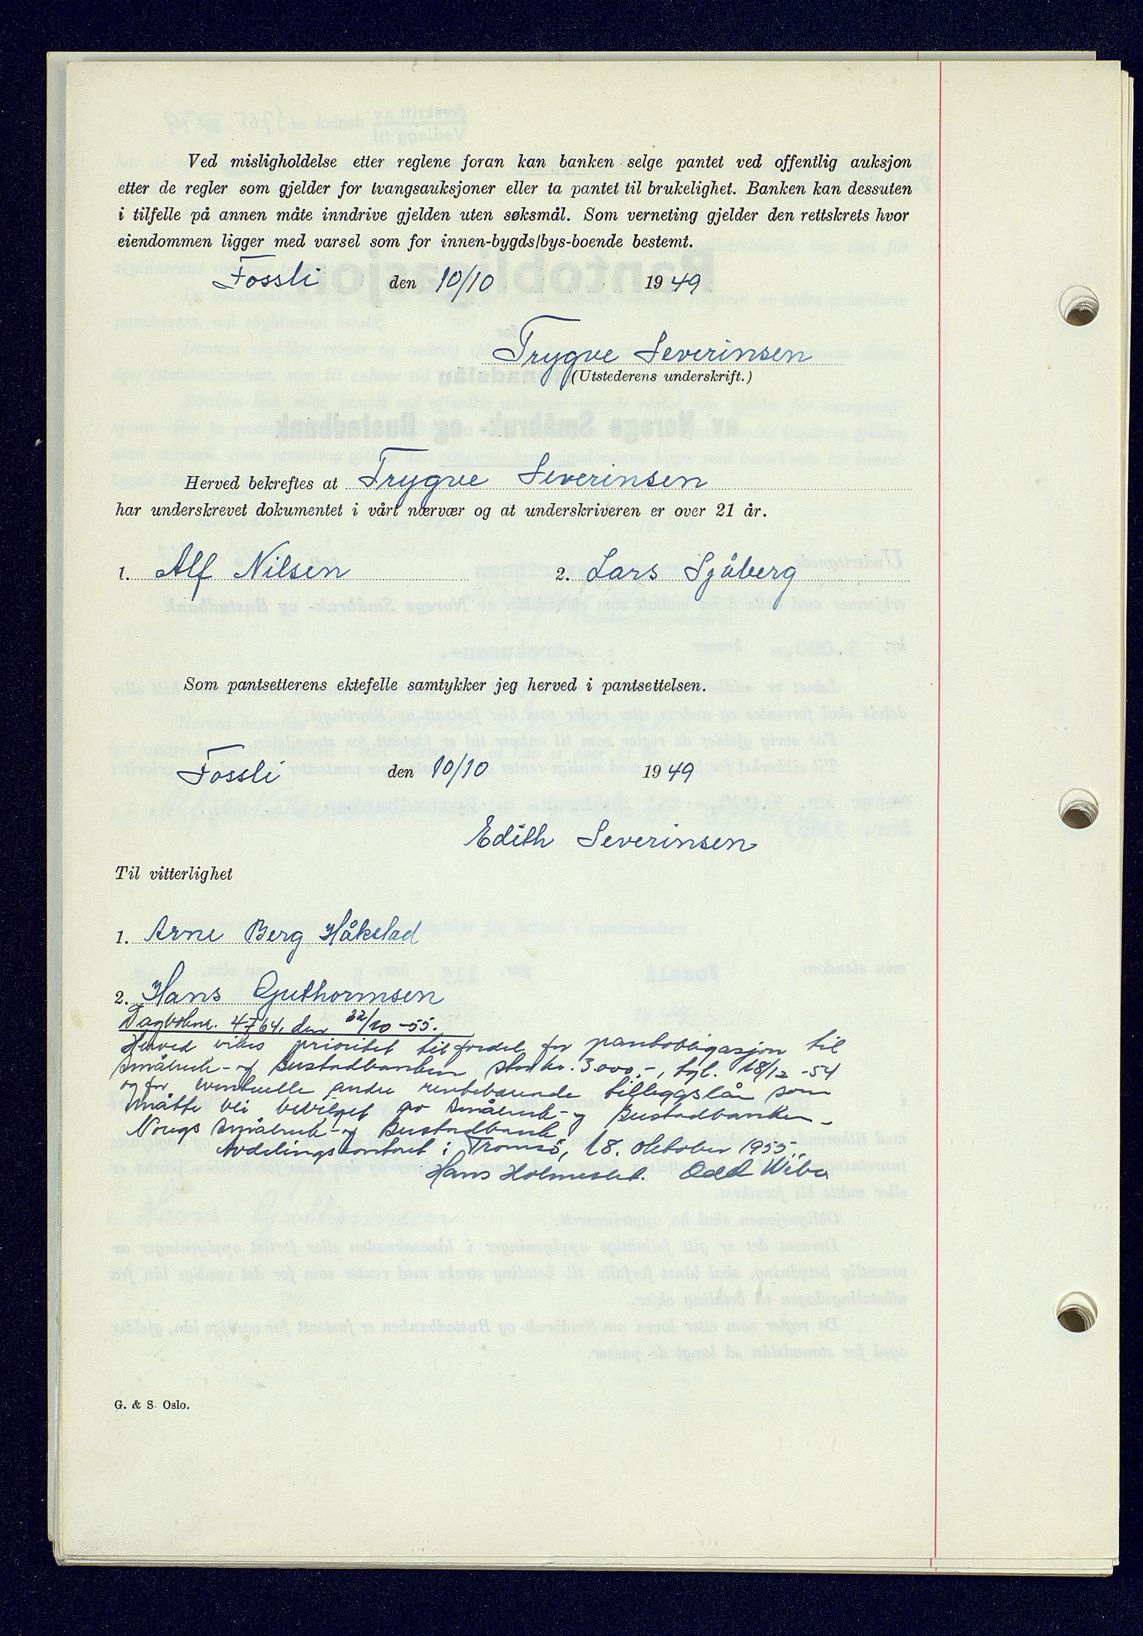 Ved misligholdelse etter reglene foran kan banken selge pantet ved offentlig auksjon
etter de regler som gjelder for tvangsauksjoner eller ta pantet til brukelighet. Banken kan dessuten
i tilfelle på annen måte inndrive gjelden uten søksmål. Som verneting gjelder den rettskrets hvor
eiendommen ligger med varsel som for innen-bygds/bys-boende bestemt.
Fossli den 10/10 1949
Trygve Severinsen
(Utstederens underskrift.)
Herved bekreftes at Trygve Severinsen
har underskrevet dokumentet i vårt nærvær og at underskriveren er over 21 år.
1. Alf Nilsen 2. Lars Sjåberg
Som pantsetterens ektefelle samtykker jeg herved i pantsettelsen.
Fossli den 10/10 1949
Edith Severinsen
Til vitterlighet
1. Arne Berg Håkstad
2. Hans Guthormsen
Dagboknr. 4764, den 22/10-55.
Herved vikes prioritet til fordel for pantobligasjon til
Småbruk- og Bustadbanken stor kr. 3.000,-, tgl. 18/12-54
og for eventuelle andre rentebærende tilleggslån som
måtte bli bevilget av Småbruk- og Bustadbanken
Noregs Småbruk- og Bustadbank
Avdelingskontoret i Tromsö, 18. oktober 1955.
Hans Holmested. Odd Wibe
G. & S. Oslo.